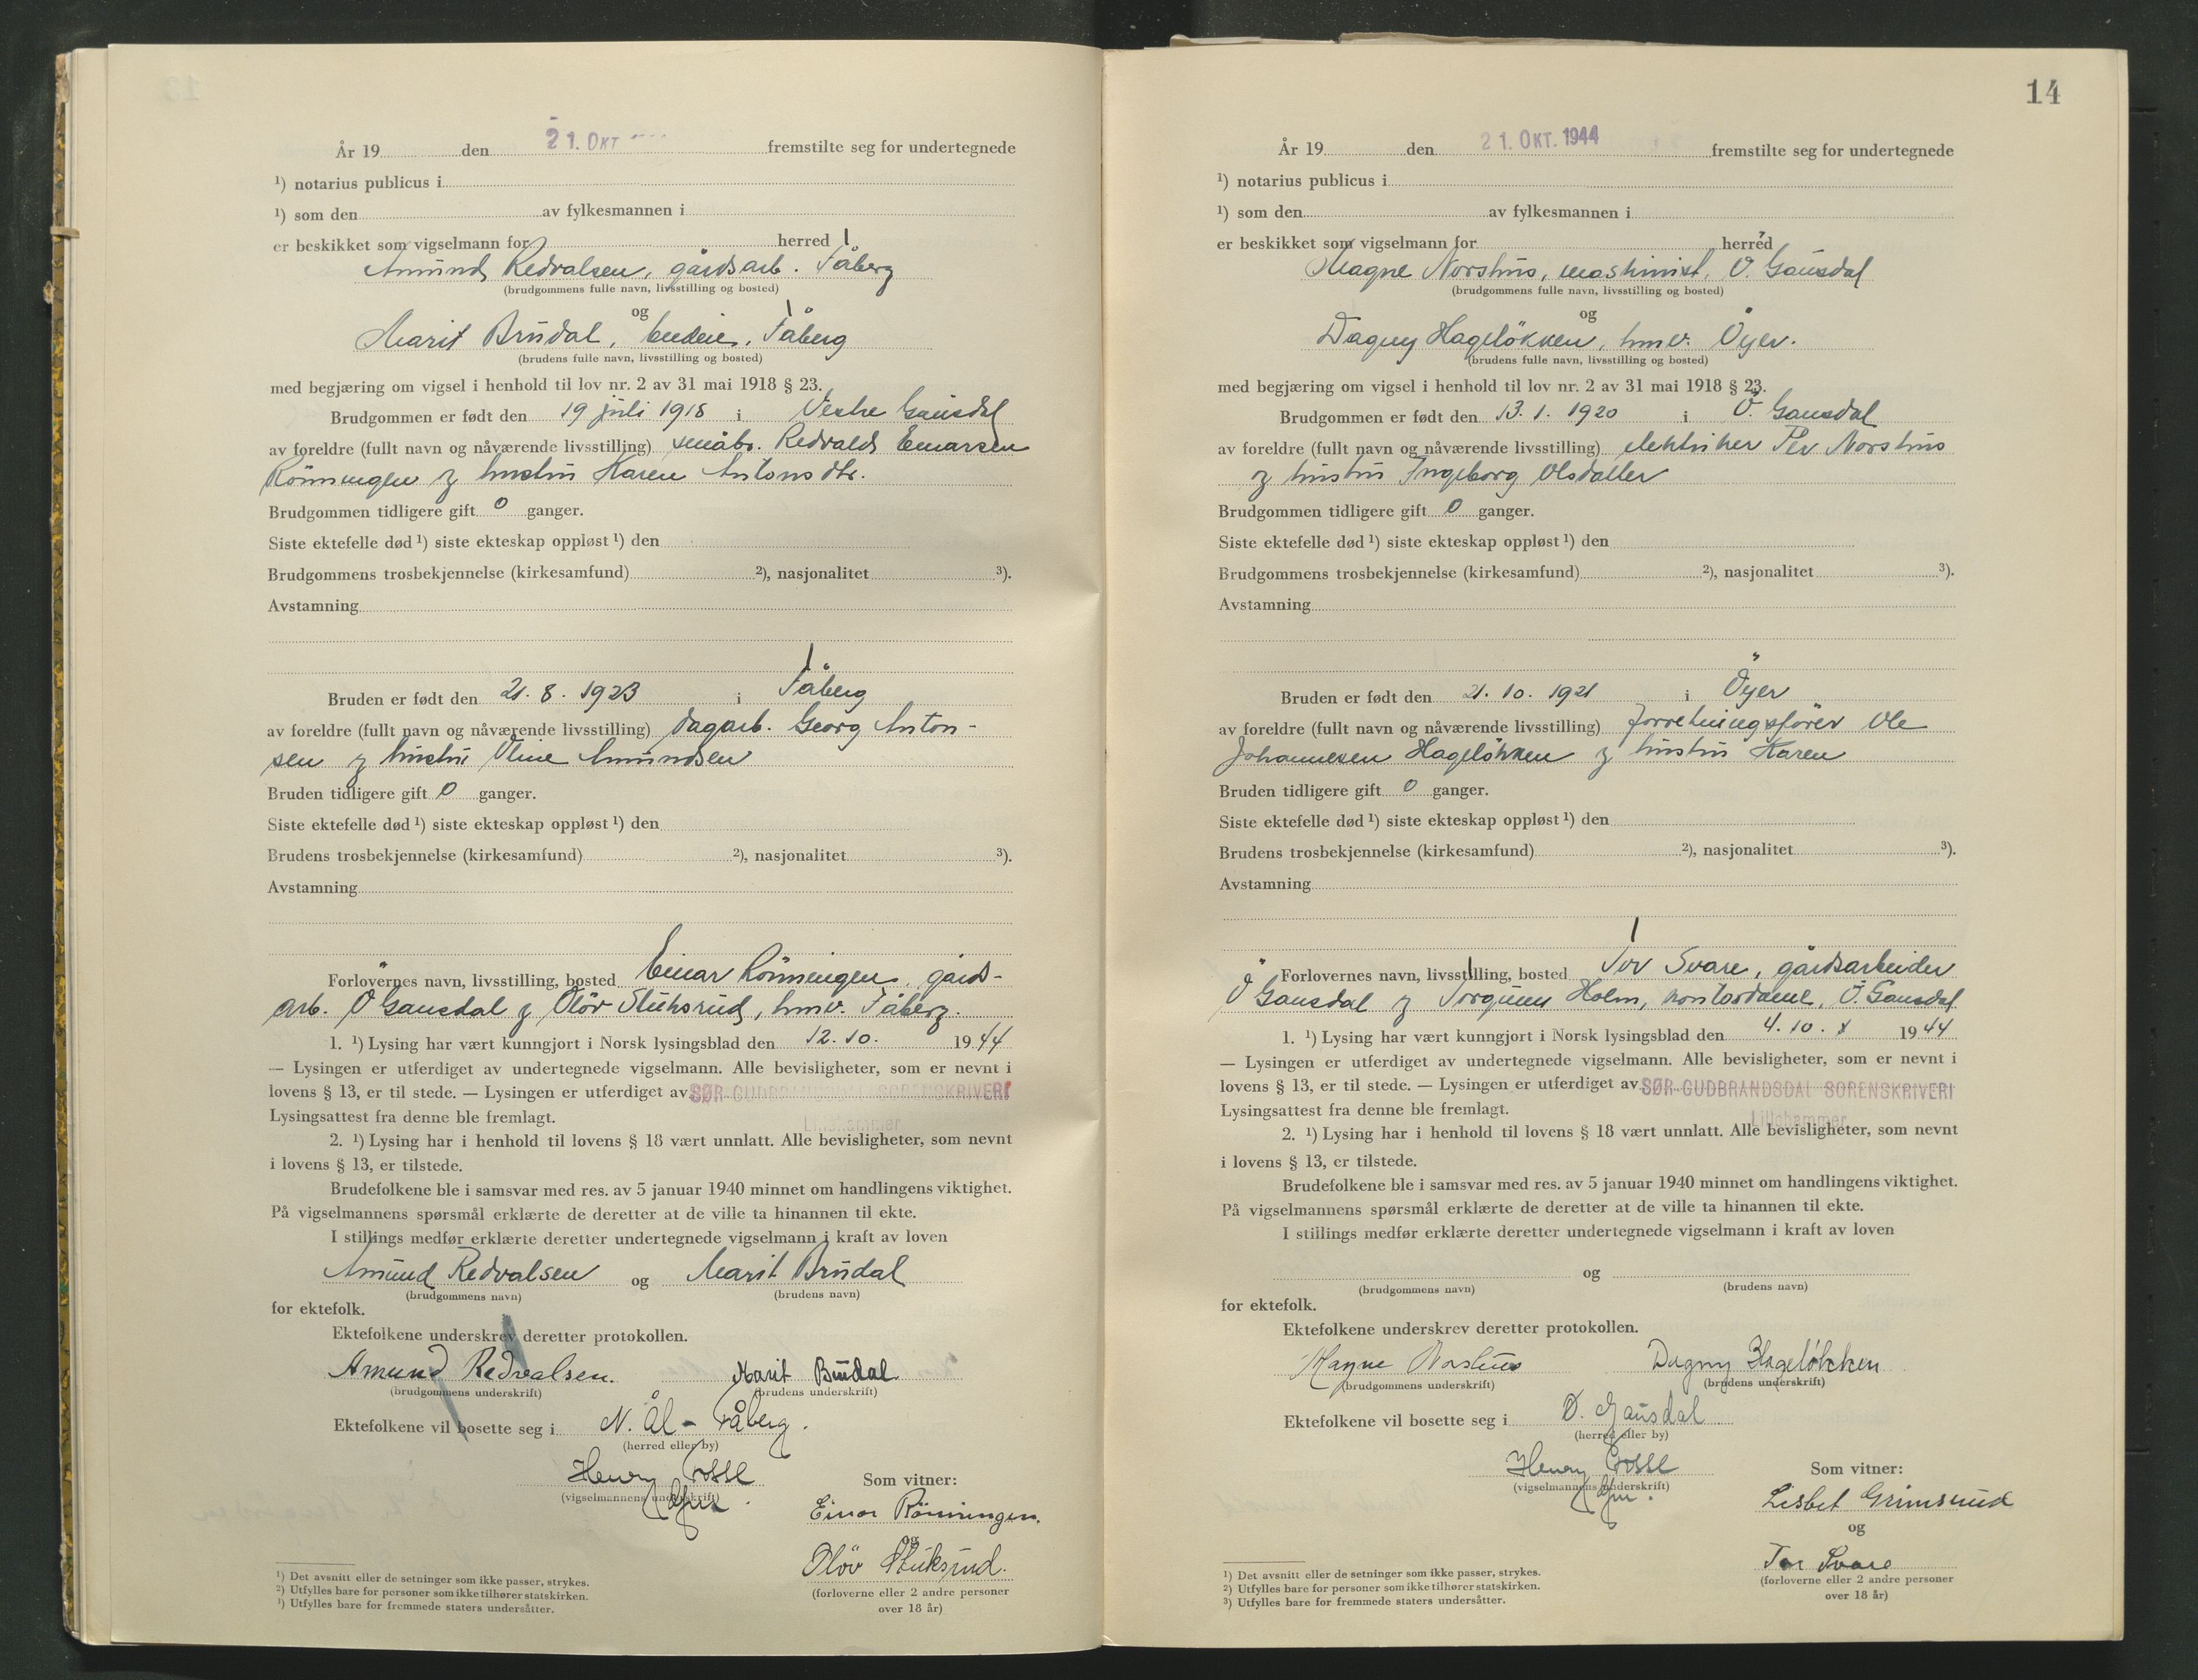 År 19 den 21. OKT fremstilte seg for undertegnede
¹) notarius publicus i
¹) som den av fylkesmannen i
er beskikket som vigselmann for herred
Amund Redvalsen, gårdsarb. Fåberg
(brudgommens fulle navn, livsstilling og bosted)
og
Marit Brudal, budeie, Fåberg
(brudens fulle navn, livsstilling og bosted)
med begjæring om vigsel i henhold til lov nr. 2 av 31 mai 1918 § 23.
Brudgommen er født den 19 juli 1918 i Vestre Gausdal
av foreldre (fullt navn og nåværende livsstilling) småbr. Redvald Emarsen
Rönningen og hustru Karen Antonsdtr.
Brudgommen tidligere gift 0 ganger.
Siste ektefelle død ¹) siste ekteskap oppløst ¹) den
Brudgommens trosbekjennelse (kirkesamfund) ²), nasjonalitet ³).
Avstamning
Bruden er født den 21. 8. 1923 i Fåberg
av foreldre (fullt navn og nåværende livsstilling) dagarb. Georg Anton-
sen og hustru Oline Amundsen
Bruden tidligere gift 0 ganger.
Siste ektefelle død ¹) siste ekteskap oppløst ¹) den
Brudens trosbekjennelse (kirkesamfund) ²), nasjonalitet ³).
Avstamning
Forlovernes navn, livsstilling, bosted Einar Rönningen, gårds-
arb. Ö Gausdal og Olöv Stuksrud, hmv. Fåberg.
1. ¹) Lysing har vært kunngjort i Norsk lysingsblad den 12. 10. 1944
— Lysingen er utferdiget av undertegnede vigselmann. Alle bevisligheter, som er nevnt i
lovens § 13, er til stede. — Lysingen er utferdiget av SØR-GUDBRANDSDAL SORENSKRIVERI
Lillehammer
Lysingsattest fra denne ble fremlagt.
2. ¹) Lysing har i henhold til lovens § 18 vært unnlatt. Alle bevisligheter, som nevnt
i lovens § 13, er tilstede.
Brudefolkene ble i samsvar med res. av 5 januar 1940 minnet om handlingens viktighet.
På vigselmannens spørsmål erklærte de deretter at de ville ta hinannen til ekte.
I stillings medfør erklærte deretter undertegnede vigselmann i kraft av loven
Amund Redvalsen og Marit Brudal
(brudgommens navn) (brudens navn)
for ektefolk.
Ektefolkene underskrev deretter protokollen.
Amund Redvalsen. Marit Brudal
(brudgommens underskrift) (brudens underskrift)
Ektefolkene vil bosette seg i N. Ål - Fåberg.
(herred eller by)
Henry
(vigselmannens underskrift)
Som vitner:
Einar Rönningen.
og
Olöv Stuksrud.
(forloverne eller 2 andre personer
over 18 år)
¹) Det avsnitt eller de setninger som ikke passer, strykes.
²) Utfylles bare for personer som ikke tilhører statskirken.
³) Utfylles bare for fremmede staters undersåtter.
14
År 19 den 21. OKT. 1944 fremstilte seg for undertegnede
¹) notarius publicus i
¹) som den av fylkesmannen i
er beskikket som vigselmann for herred
Magne Norshus, maskinist, Ö. Gausdal
(brudgommens fulle navn, livsstilling og bosted)
og
Dagny Hagelökken, hmv. Öyer.
(brudens fulle navn, livsstilling og bosted)
med begjæring om vigsel i henhold til lov nr. 2 av 31 mai 1918 § 23.
Brudgommen er født den 13. 1. 1920 i Ö. Gausdal
av foreldre (fullt navn og nåværende livsstilling) elektriker Per Norshus
og hustru Ingeborg Olsdatter
Brudgommen tidligere gift 0 ganger.
Siste ektefelle død ¹) siste ekteskap oppløst ¹) den
Brudgommens trosbekjennelse (kirkesamfund) ²), nasjonalitet ³).
Avstamning
Bruden er født den 21. 10. 1921 i Öyer
av foreldre (fullt navn og nåværende livsstilling) forretningsförer Ole
Johannesen Hagelökken og hustru Karen
Bruden tidligere gift 0 ganger.
Siste ektefelle død ¹) siste ekteskap oppløst ¹) den
Brudens trosbekjennelse (kirkesamfund) ²), nasjonalitet ³).
Avstamning
Forlovernes navn, livsstilling, bosted Tor Svare, gårdsarbeider
Ö Gausdal og Torgunn Holm, kontordame, Ö. Gausdal
1. ¹) Lysing har vært kunngjort i Norsk lysingsblad den 4. 10. 1944
— Lysingen er utferdiget av undertegnede vigselmann. Alle bevisligheter, som er nevnt i
lovens § 13, er til stede. — Lysingen er utferdiget av SØR-GUDBRANDSDAL SORENSKRIVERI
Lillehammer
Lysingsattest fra denne ble fremlagt.
2. ¹) Lysing har i henhold til lovens § 18 vært unnlatt. Alle bevisligheter, som nevnt
i lovens § 13, er tilstede.
Brudefolkene ble i samsvar med res. av 5 januar 1940 minnet om handlingens viktighet.
På vigselmannens spørsmål erklærte de deretter at de ville ta hinannen til ekte.
I stillings medfør erklærte deretter undertegnede vigselmann i kraft av loven
og
(brudgommens navn) (brudens navn)
for ektefolk.
Ektefolkene underskrev deretter protokollen.
Magne Norshus Dagny Hagelökken
(brudgommens underskrift) (brudens underskrift)
Ektefolkene vil bosette seg i Ö. Gausdal
(herred eller by)
Henry
(vigselmannens underskrift)
Som vitner:
Lisbet Grimsrud
og
Tor Svare
(forloverne eller 2 andre personer
over 18 år)
¹) Det avsnitt eller de setninger som ikke passer, strykes.
²) Utfylles bare for personer som ikke tilhører statskirken.
³) Utfylles bare for fremmede staters undersåtter.